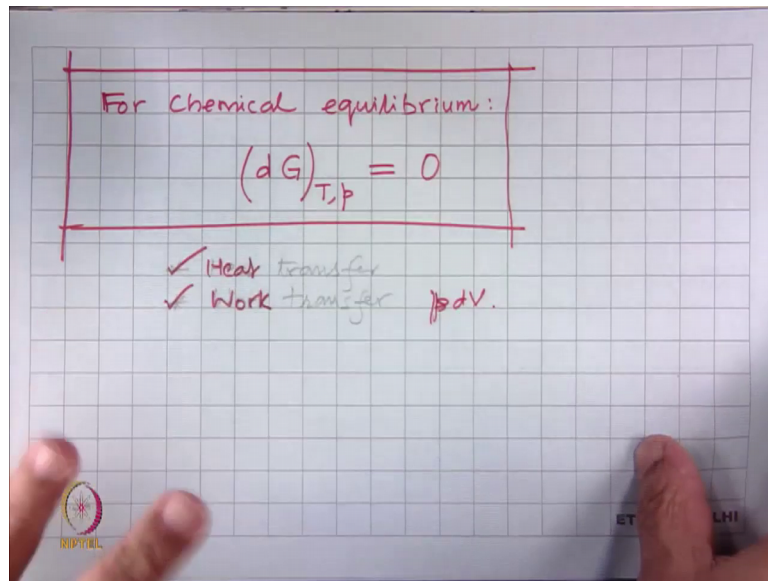 For Chemical equilibrium:
(dG)T,p = 0
✓ Heat transfer
✓ Work transfer pdV.
ET LHI
NPTEL